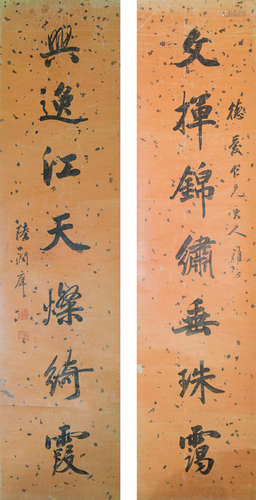 仁兄大人雅
文揮錦繡垂珠靄
興逸江天燦綺霞
陸潤庠